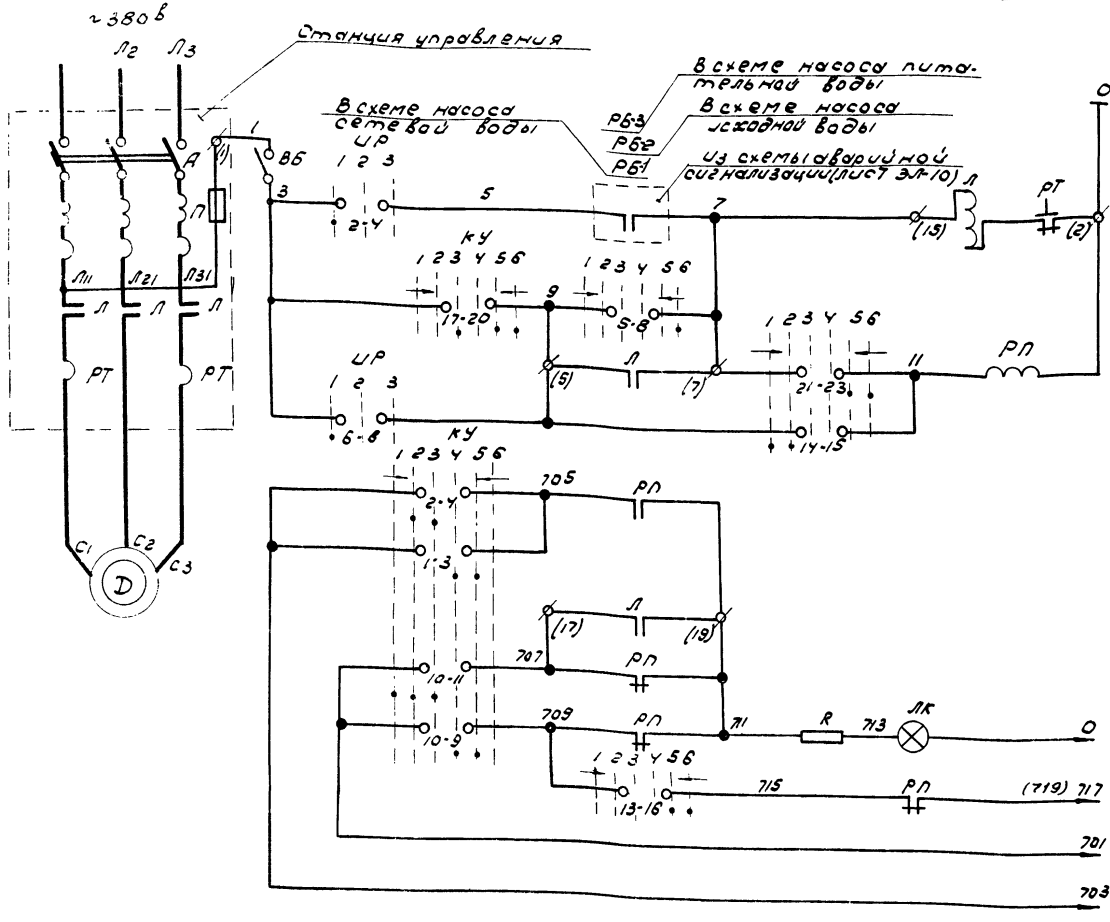 ~380в
Л2
Л3
Станция управления
В схеме насоса пита-
тельной воды
В схеме насоса
исходной воды
В схеме насоса
сетевой воды
РБ-3
РБ-2
РБ-1
Из схемы аварийной
сигнализации (лист ЭЛ-10)
0
(1)
1
ВБ
А
П
3
ИР
1 2 3
2-4
5
7
(15)
Л
РТ
(2)
КУ
1 2 3 4 5 6
17-20
9
1 2 3 4 5 6
5-8
Л11
Л21
Л31
Л
Л
Л
РТ
РТ
(5)
Л
(7)
1 2 3 4 5 6
21-23
11
РП
14-15
ИР
1 2 3
6-8
КУ
1 2 3 4 5 6
2-4
705
РП
1-3
С1
С2
С3
D
(17)
Л
(19)
10-11
707
РП
10-9
709
РП
711
R
713
ЛК
0
1 2 3 4 5 6
13-16
715
РП
(719) 717
701
703